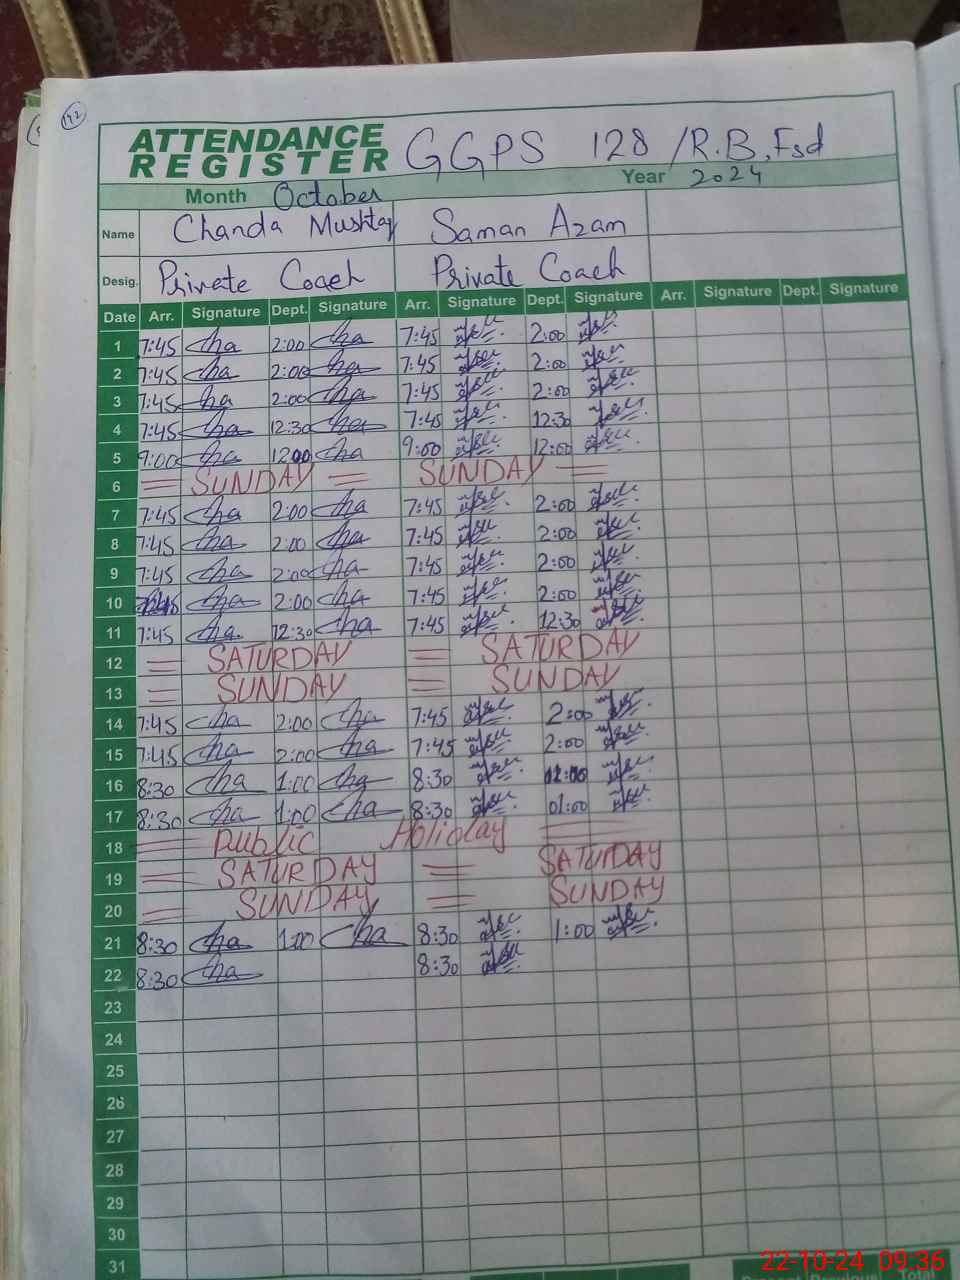 192
ATTENDANCE REGISTER GGPS 128 /R.B, Fsd
Month October Year 2024
Name Chanda Mushtaq Saman Azam
Desig. Private Coach Private Coach
Date Arr. Signature Dept. Signature Arr. Signature Dept. Signature Arr. Signature Dept. Signature
1 7:45 cha 2:00 cha 7:45 2:00
2 7:45 cha 2:00 cha 7:45 2:00
3 7:45 cha 2:00 cha 7:45 2:00
4 7:45 cha 12:30 cha 7:45 12:30
5 9:00 cha 12:00 cha 9:00 12:00
6 = SUNDAY = SUNDAY =
7 7:45 cha 2:00 cha 7:45 2:00
8 7:45 cha 2:00 cha 7:45 2:00
9 7:45 cha 2:00 cha 7:45 2:00
10 cha 2:00 cha 7:45 2:00
11 7:45 cha 12:30 cha 7:45 12:30
12 = SATURDAY = SATURDAY
13 = SUNDAY = SUNDAY
14 7:45 cha 2:00 cha 7:45 2:00
15 7:45 cha 2:00 cha 7:45 2:00
16 8:30 cha 1:00 cha 8:30
17 8:30 cha 1:00 cha 8:30 01:00
18 = Public Holiday =
19 = SATURDAY = SATURDAY
20 = SUNDAY = SUNDAY
21 8:30 cha 1:00 cha 8:30 1:00
22 8:30 cha 8:30
23
24
25
26
27
28
29
30
31
22-10-24 09.36